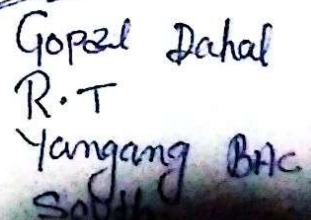 Gopal Dahal
R.T
Yangang BAC
South